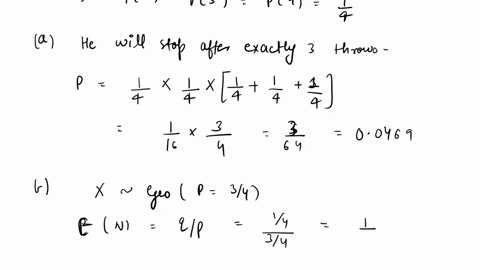 P(3) = P(4) = 1/4
(a) He will stop after exactly 3 throws-
P = 1/4 × 1/4 × [1/4 + 1/4 + 1/4]
= 1/16 × 3/4 = 3/64 = 0.0469
b) X ~ Geo ( P = 3/4)
E (N) = q/p = 1/4 / 3/4 = 1